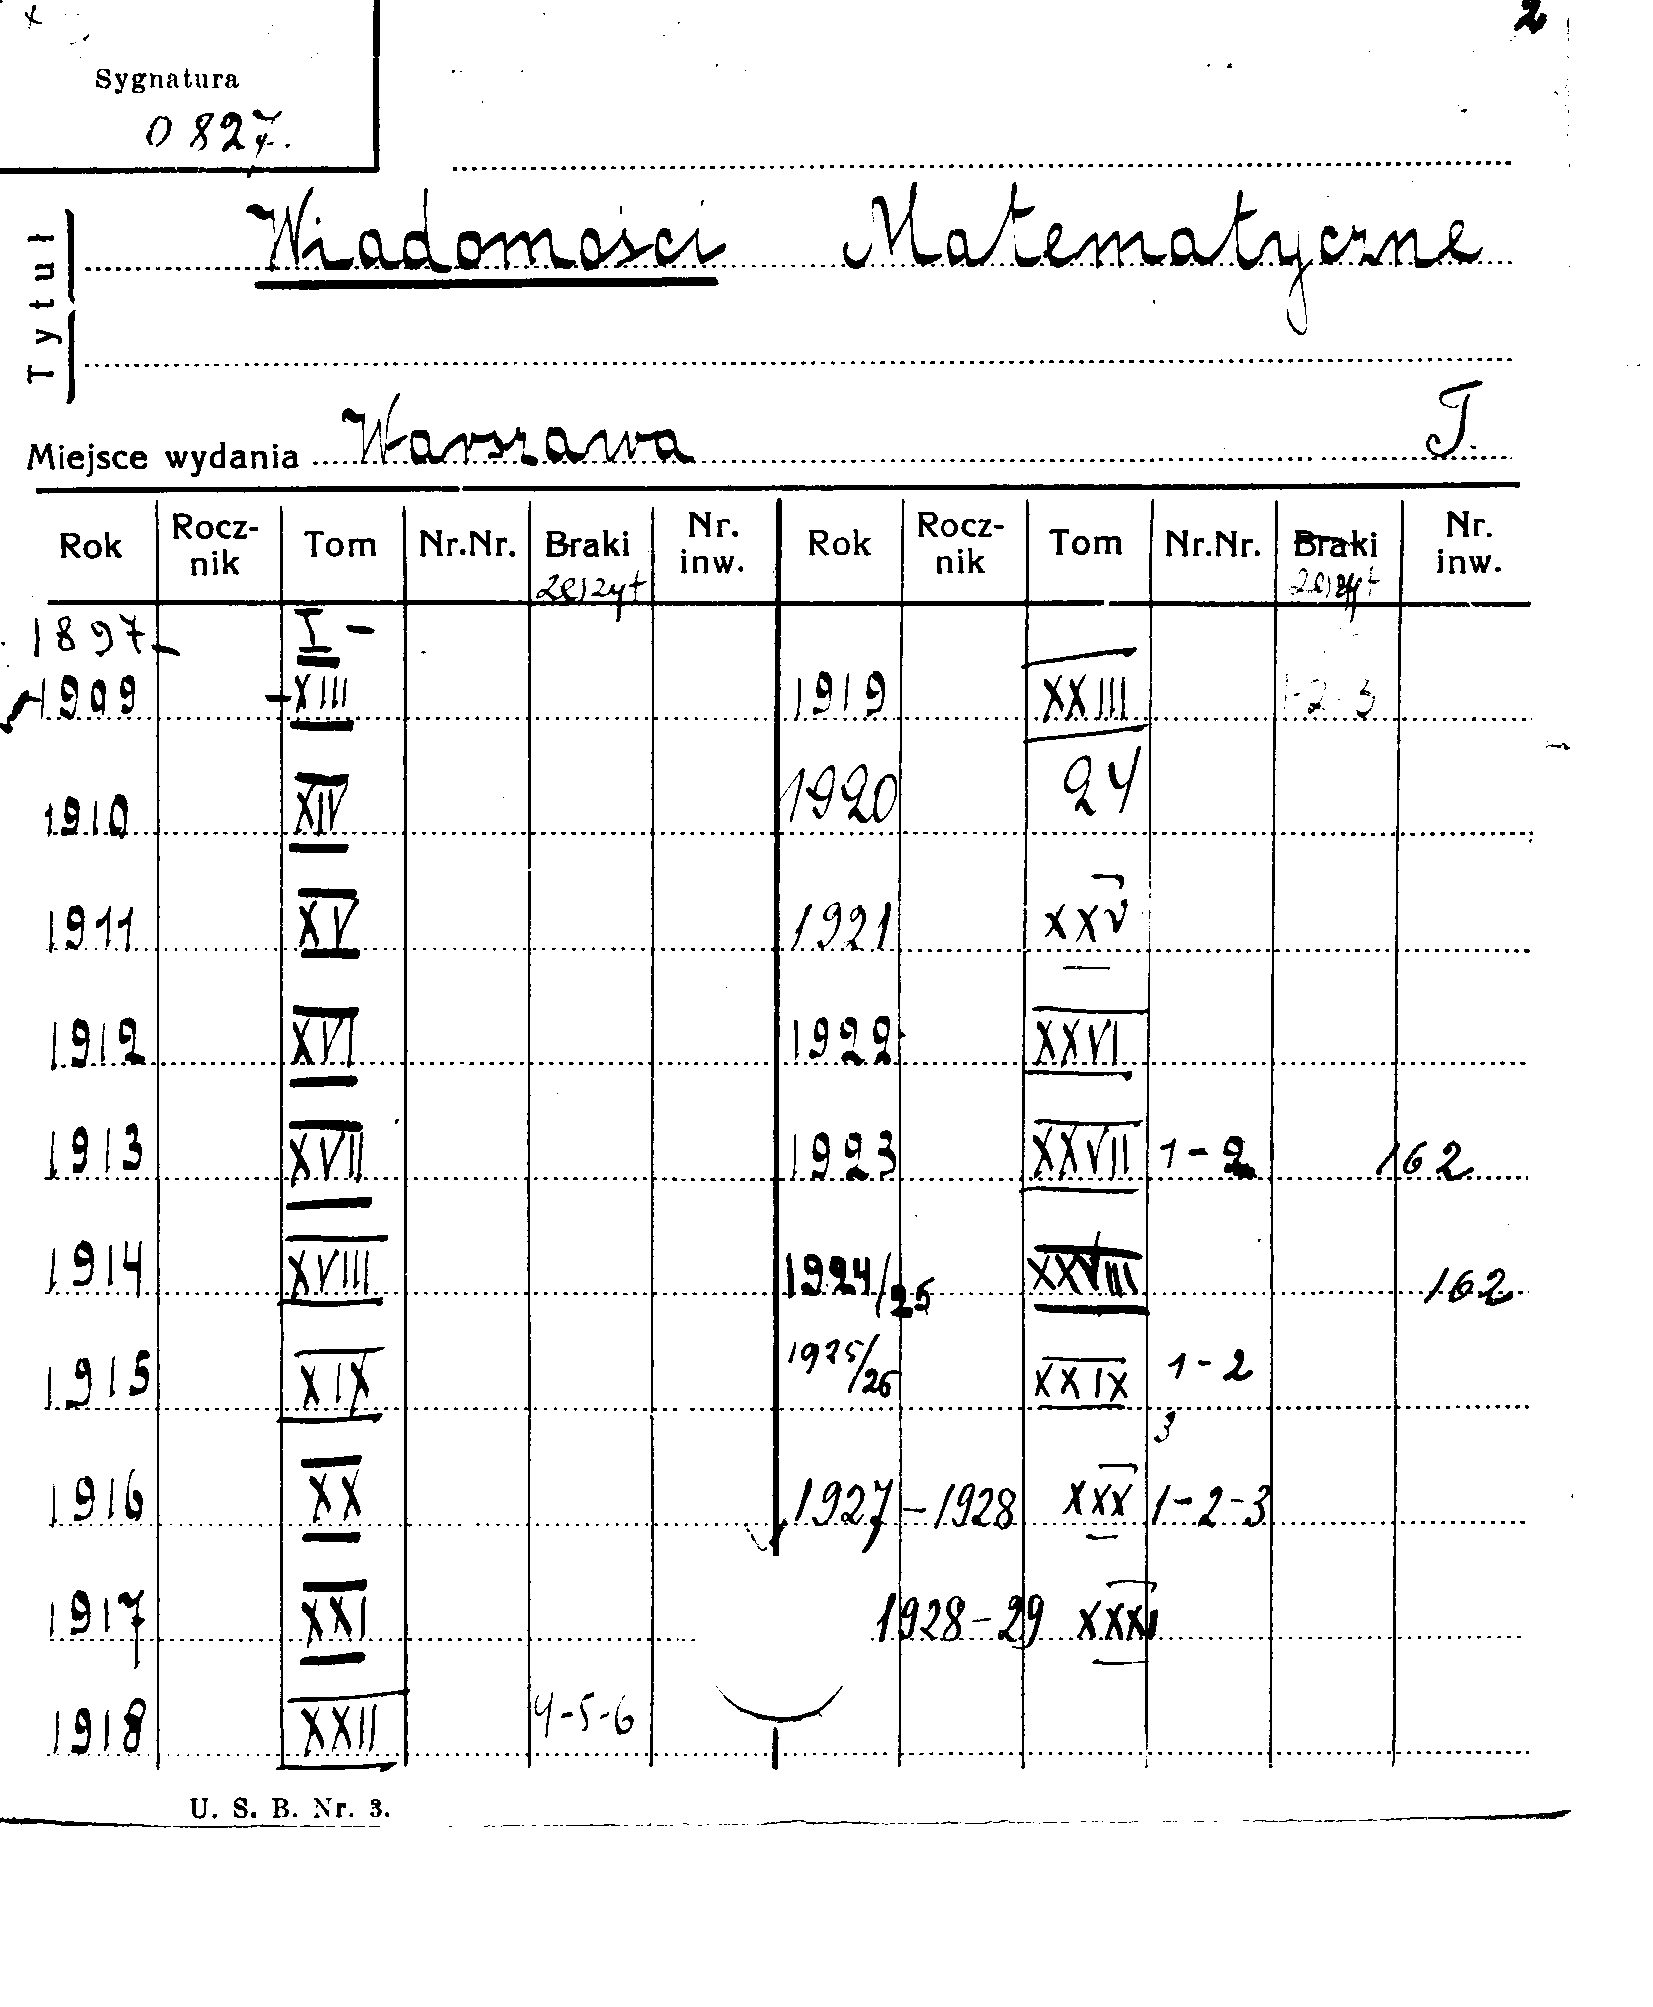 2
Sygnatura
0 827.
Tytuł
Wiadomości Matematyczne
Miejsce wydania Warszawa I.
Rok Rocz-nik Tom Nr.Nr. Braki Nr. inw. Rok Rocz-nik Tom Nr.Nr. Braki Nr. inw.
zeszyt zeszyt
1897- I -
-1909 -XIII 1919 XXIII 1-2-3
1910 XIV 1920 24
1911 XV 1921 XXV
1912 XVI 1922 XXVI
1913 XVII 1923 XXVII 1-2 162
1914 XVIII 1924/25 XXVIII 162
1915 XIX 1925/26 XXIX 1-2
3
1916 XX 1927-1928 XXX 1-2-3
1917 XXI 1928-29 XXXI
1918 XXII 4-5-6
U. S. B. Nr. 3.